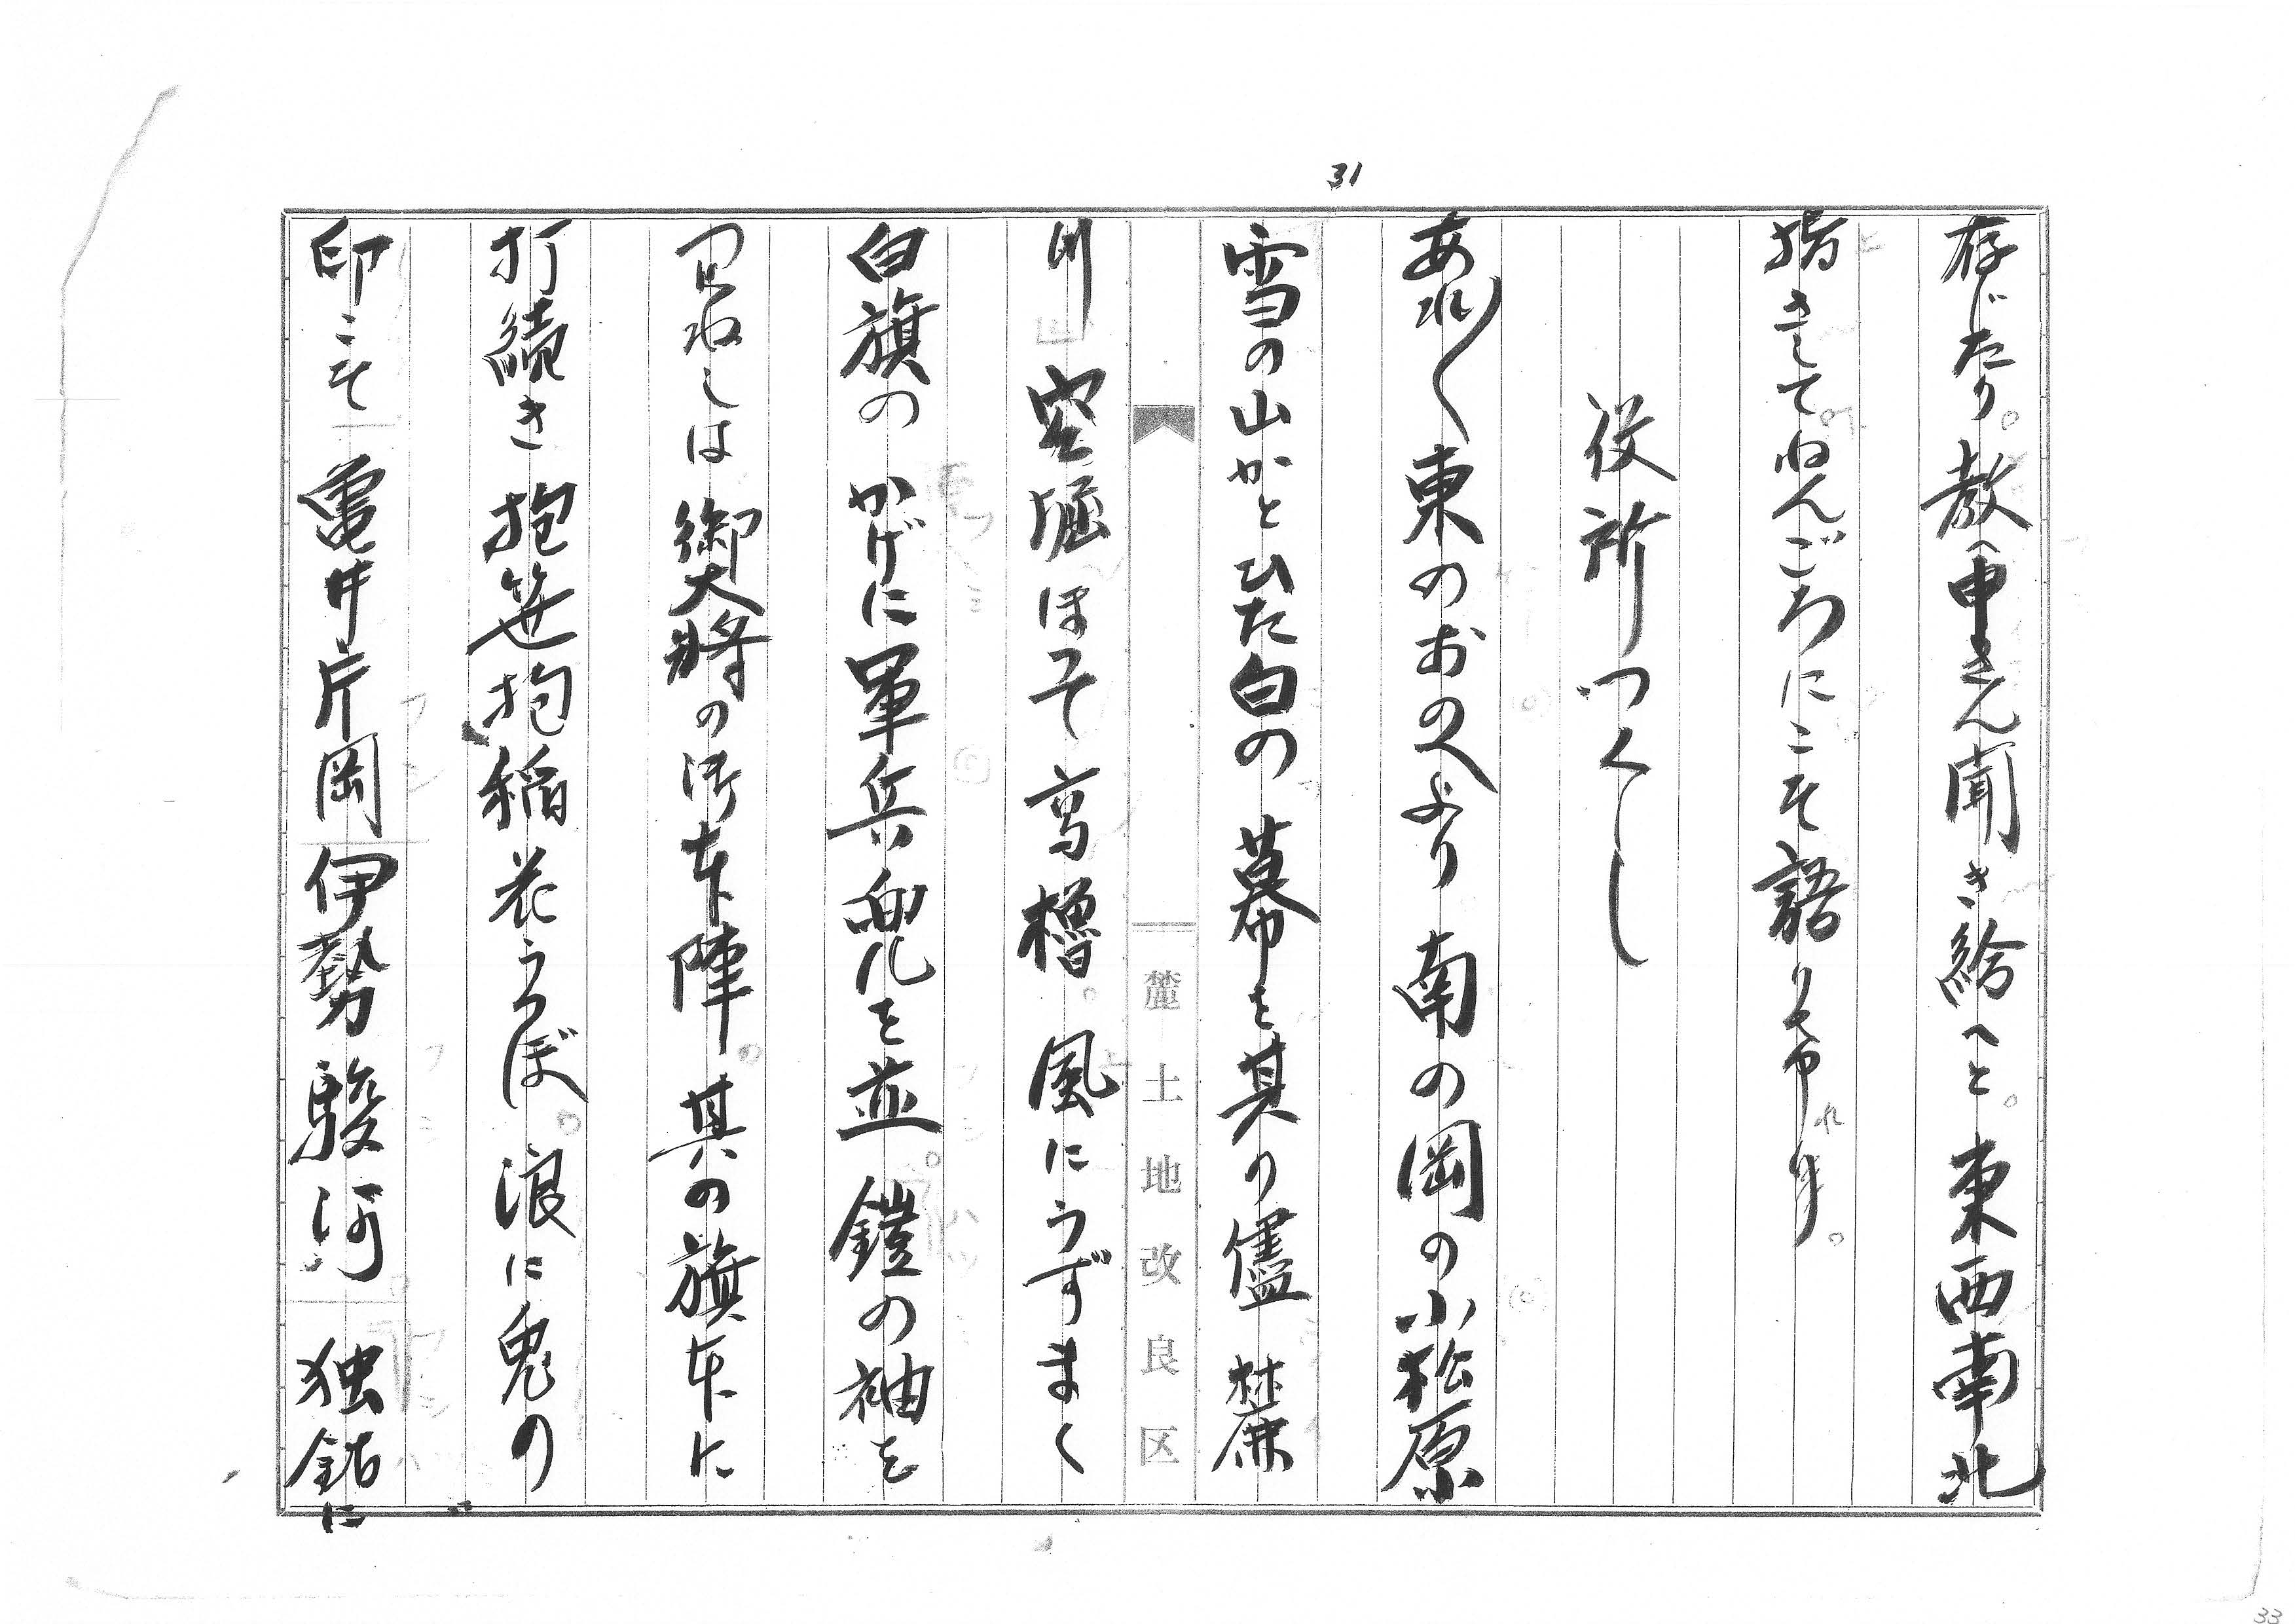 31
存じたり。教へ申さん聞き給へと。東西南北
指さしてねんごろにこそ語りける。
役所つくし
あれ〱東のおのへより南の岡の小松原
雪の山かとひた白の幕を其の儘林麻
川 空堀ほそて高櫓。風にうずまく
白旗のかげに軍兵 を並 鎧の袖を
つらねしは御大将の御本陣 其の旗本に
打続き抱笹抱稲花うつぼ 浪に兎の
印こそ 亀井片岡 伊勢駿河 独鈷に
麓土地改良区
33